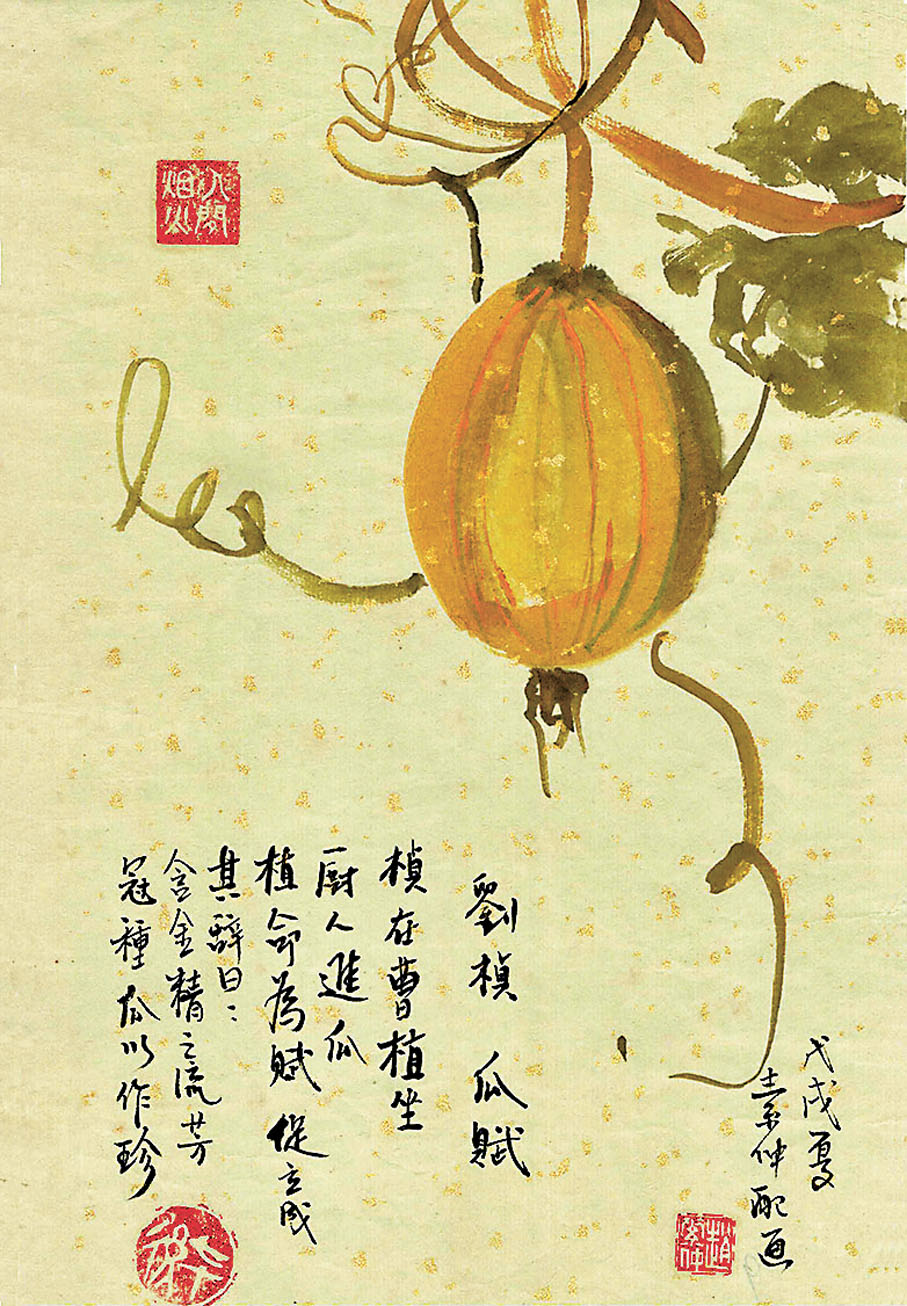 戊戌夏
素仲配画
趙素仲
劉楨 瓜賦
楨在曹植坐
厨人進瓜
植命為賦 促立成
其辭曰：
含金精之流芳
冠種瓜以作珍
人間烟火